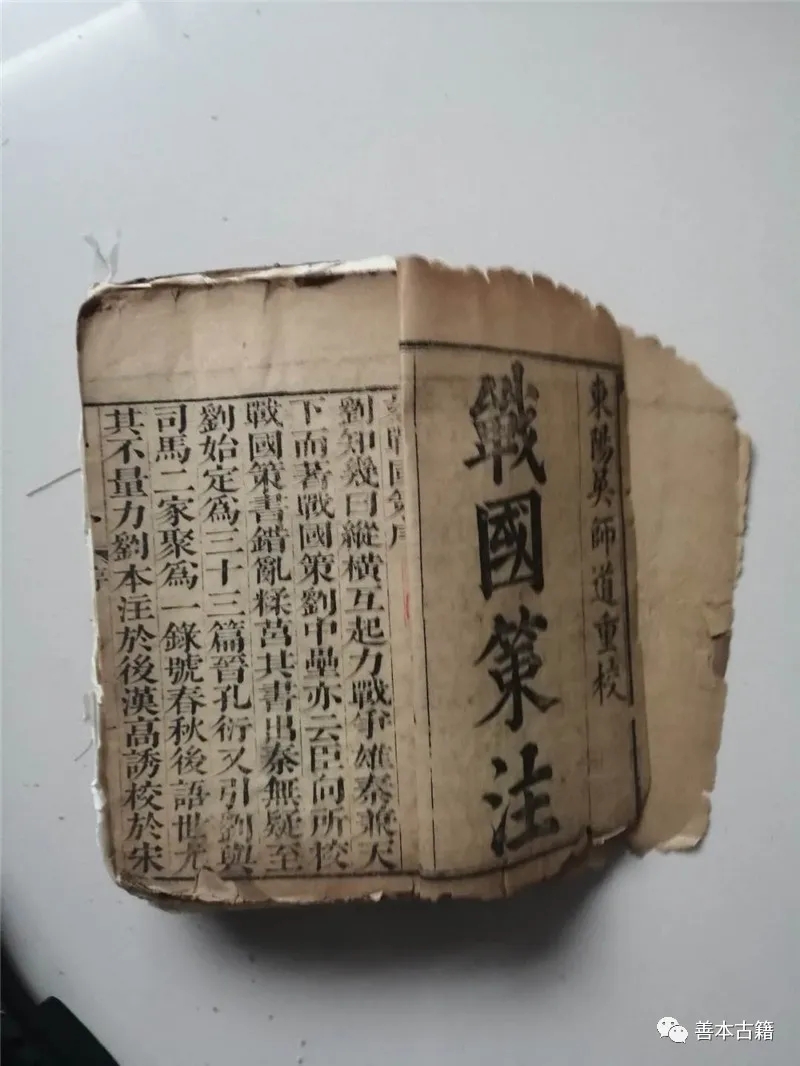 東陽吳師道重校
戰國策注
戰國策序
劉知幾曰縱橫互起力戰爭雄秦兼天
下而著戰國策劉中壘亦云臣向所校
戰國策書錯亂糅莒其書出秦無疑至
劉始定爲三十三篇晉孔衍又引劉與
司馬二家聚爲一錄號春秋後語世尤
其不量力劉本注於後漢高誘校於宋
序
善本古籍